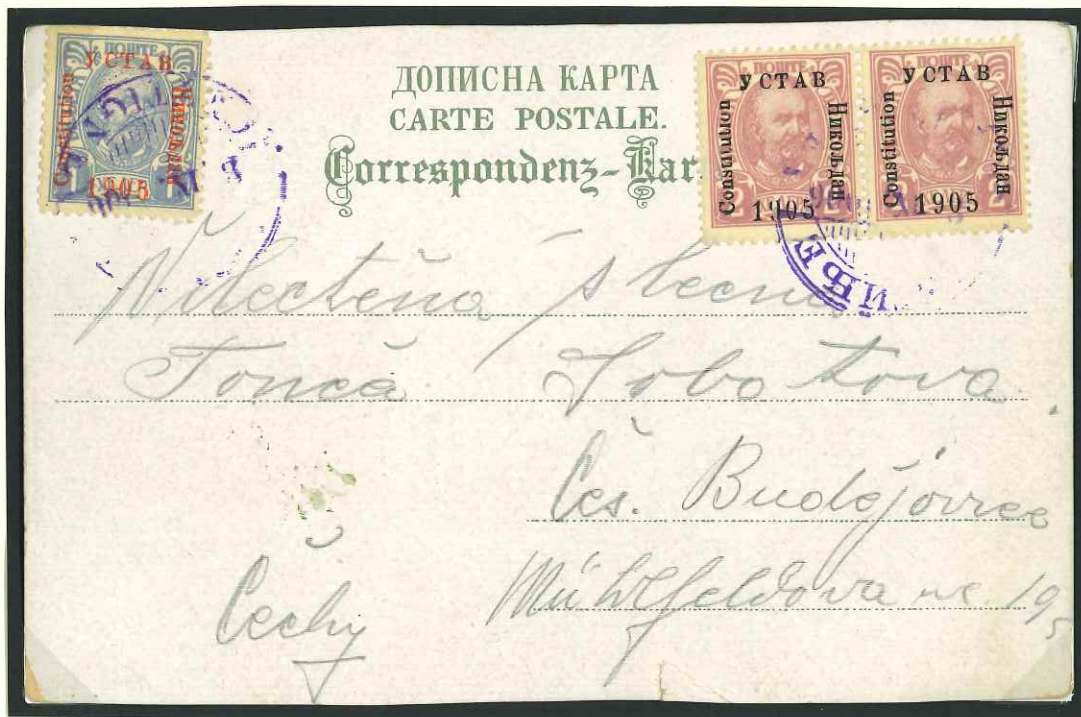 ПОШТЕ
УСТАВ
Constitution
Никољдан
1905
ДОПИСНА КАРТА
CARTE POSTALE.
Correspondenz-Kar
ПОШТЕ
УСТАВ
Constitution
Никољдан
1905
ПОШТЕ
УСТАВ
Constitution
Никољдан
1905
Velectěná slečna
Tonča
Čes. Budějovice
Mühlfeldova ul. 19
Čechy